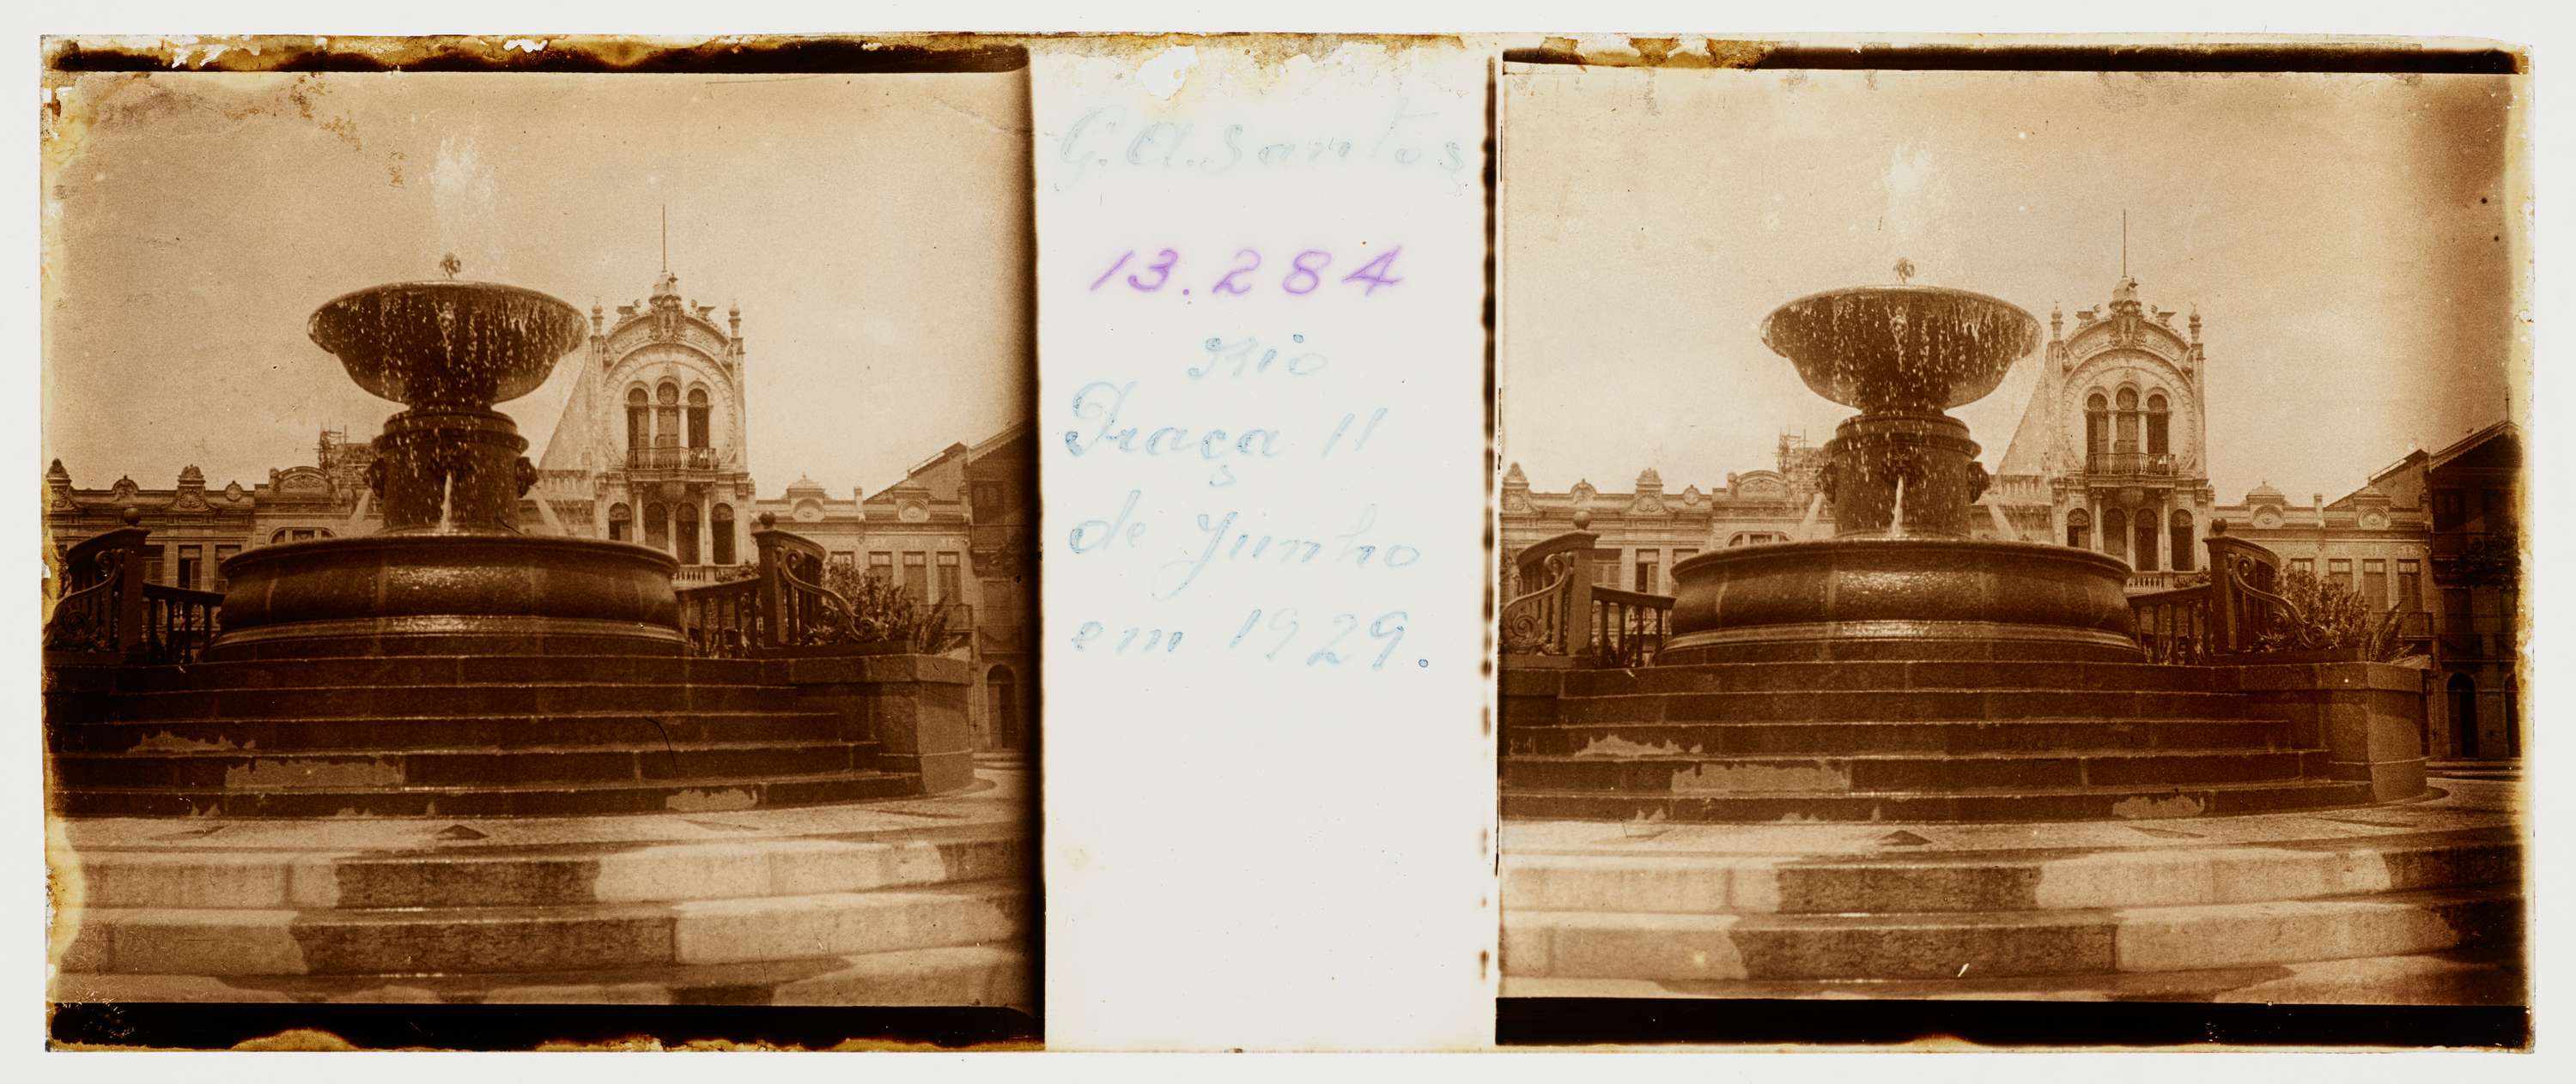 G. A. Santos
13.284
Rio
Praça 11
de Junho
em 1929.